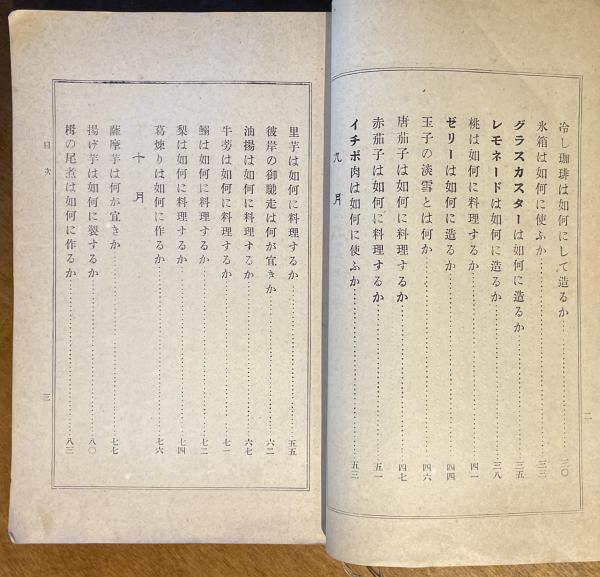 冷し珈琲は如何にして造るか…………三〇
氷箱は如何に使ふか…………三三
グラスカスターは如何に造るか…………三五
レモネードは如何に造るか…………三八
桃は如何に料理するか…………四一
ゼリーは如何に造るか…………四四
玉子の淡雪とは何か…………四六
唐茄子は如何に料理するか…………四七
赤茄子は如何に料理するか…………五一
イチボ肉は如何に使ふか…………五三
九月
二
里芋は如何に料理するか…………五五
彼岸の御馳走は何が宜きか…………六二
油揚は如何に料理するか…………六七
牛蒡は如何に料理するか…………七一
鰯は如何に料理するか…………七二
梨は如何に料理するか…………七四
葛煉りは如何に作るか…………七六
十月
薩摩芋は何が宜きか…………七七
揚げ芋は如何に製するか…………八〇
の尾煮は如何に作るか…………八三
目次
三